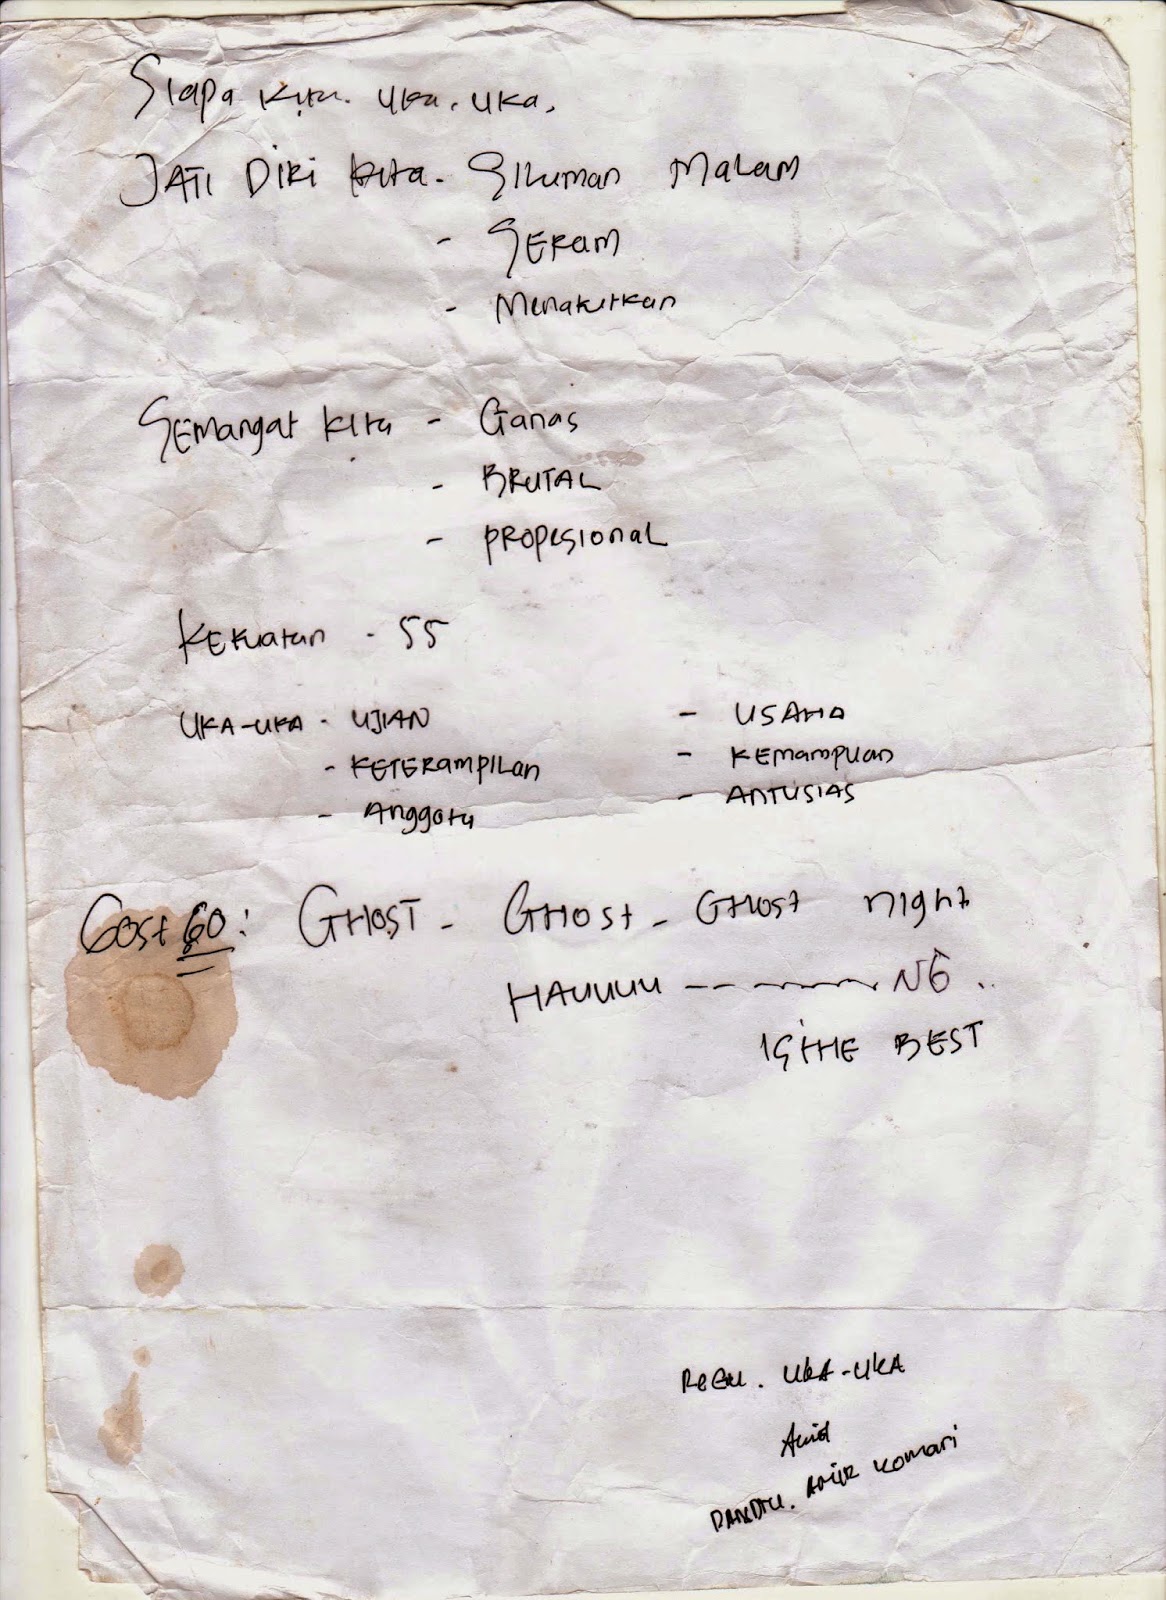 Siapa Kita. Uka. Uka.
JATI DIRI Kita. Siluman Malam
- SERam
- Menakutkan
SEmangat Kita - Ganas
- BRUTAL
- PROPesionaL
KEKuatan - 55
UKA-UKA - UJIAN - USAHA
- KETERAMPILan - KEMampuan
- Anggota - ANTUSIAS
Cost 60: GHOST - GHOst - GHOst night
HAUUUU --- NG..
IS THE BEST
REGU. UKA-UKA
Komari